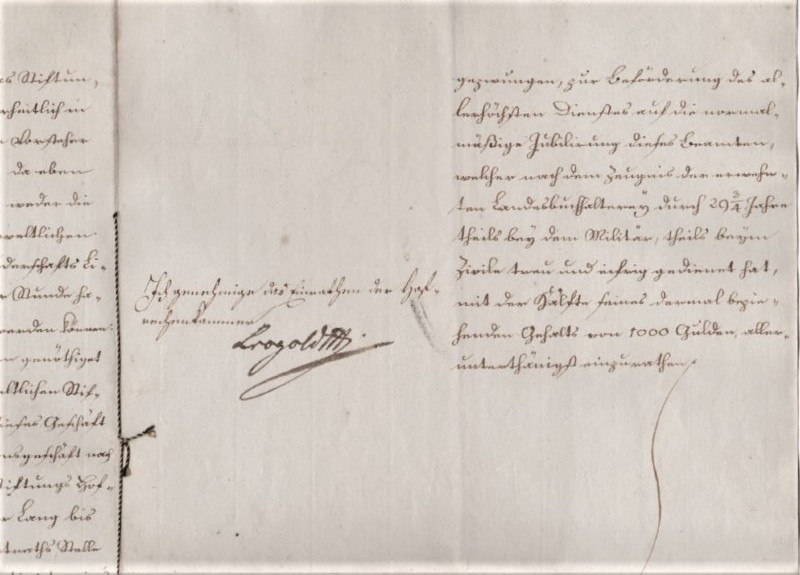 es Stiftun-
rheitlich in
n Vorsteher
da eben
weder die
weltlichen
derschafts Li-
r Stunde ha-
werden können:
n genöthiget
eltlichen Stif-
ieses Geschäft
nsgeschäft nach
tiftungs Hof-
r Lang bis
traths Stelle
Ich genehmige das Einrathen der Hof-
rechenkammer
Leopold
gezwungen, zur Beförderung des al-
lerhöchsten Dienstes auf die normal-
mäßige Jubilirung dieses Beamten,
welcher nach dem Zeugnis der erwehn-
ten Landesbuchhalterey durch 29 3/4 Jahre
theils bey dem Militär, theils beym
Zivile treu und eifrig gedienet hat,
mit der Hälfte seines dermal bezie-
henden Gehalts von 1000 Gulden, aller-
unterthänigst einzurathen